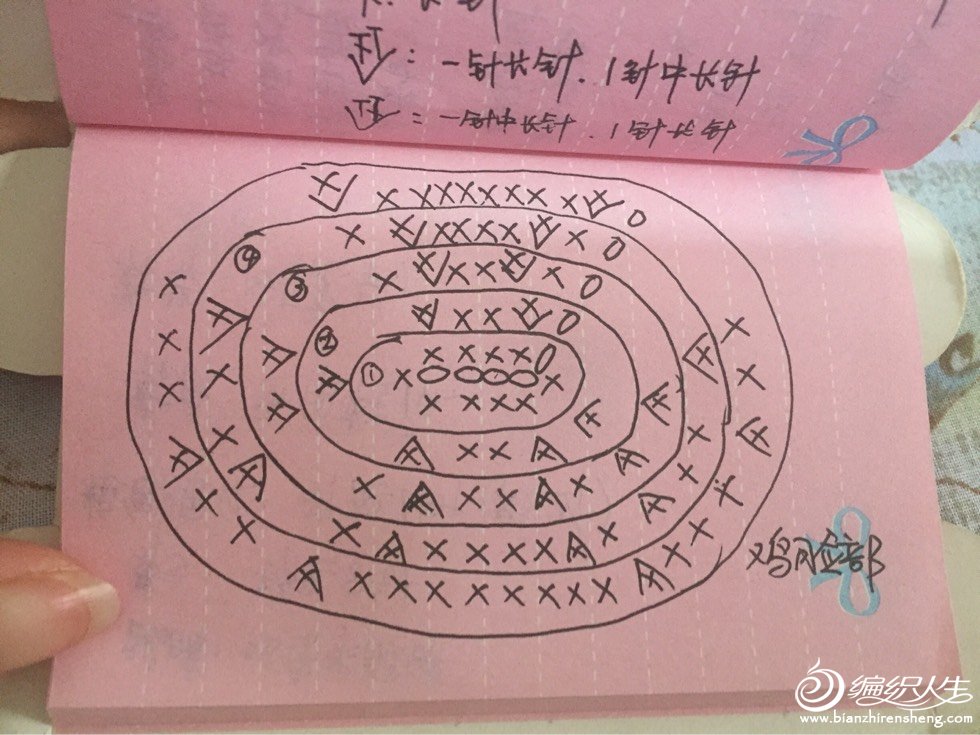 长针
: 一针长针、1针中长针
: 一针中长针、1针长针
④
③
②
①
鸡脸部
编织人生
www.bianzhirensheng.com